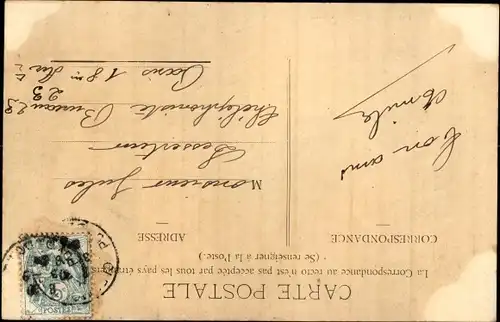 CARTE POSTALE
La Correspondance au recto n'est pas acceptée par tous les pays étrangers
(Se renseigner à la Poste.)
CORRESPONDANCE
ADRESSE
Ton ami
Emile
Monsieur Jules
Téléphoniste Bureau 23
23
Paris 18
POSTES